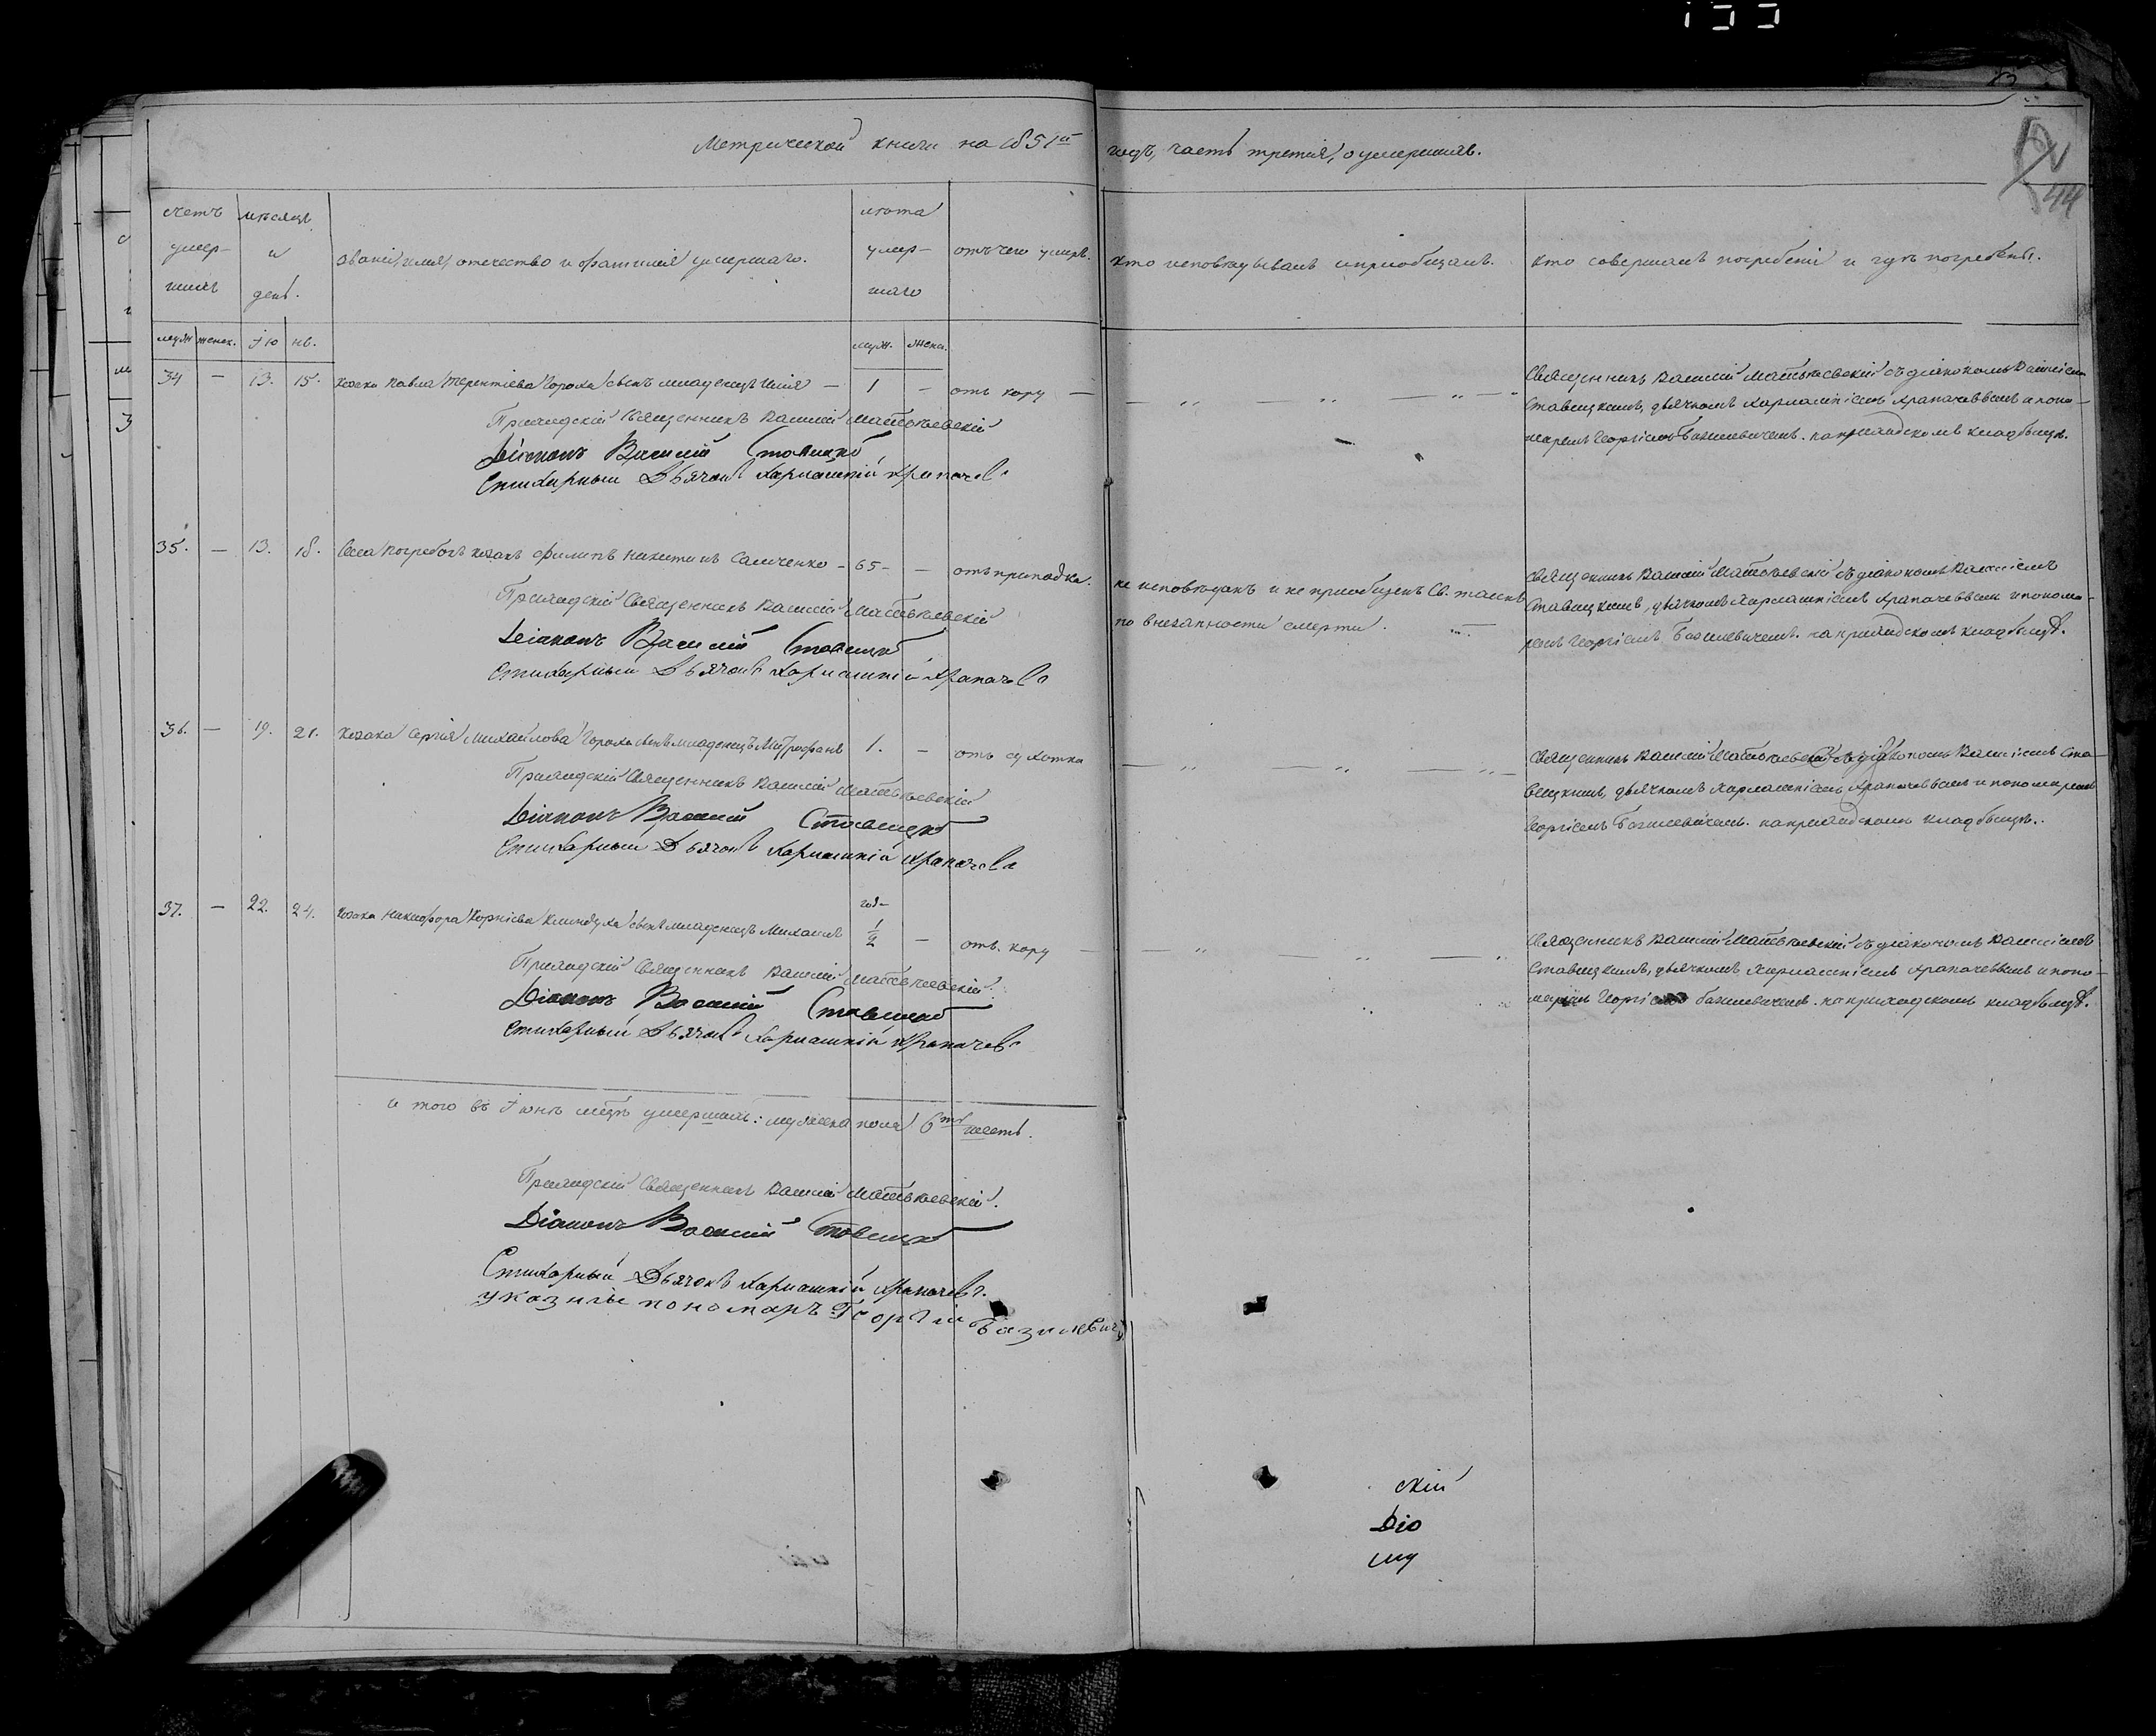 Метрической книги на 1851й годъ, часть третія, о умершихъ.
44
счетъ умер-шихъ
мѣсяцъ и день.
званіе, имя, отечество и фамилія умершаго.
лѣта умер-шаго
отъ чего умеръ.
кто исповѣдывалъ и приобщалъ.
кто совершалъ погребеніе и гдѣ погребены.
муж женск. Ію нь. муж. женск.
34 — 13. 15. козака Павла Терентіева Гороха сынъ младенецъ Илія — 1 — отъ кору —
Приходскій Священникъ Василій Матвѣевскій
Діаконъ Василій Ставицкій
Стихарный Дьячокъ Харлампій Храпачев
— „ — „ — „ —
Священникъ Василій Матвѣевскій съ діакономъ Василіемъ
Ставицкимъ, дьячкомъ Харлампіемъ Храпачеввымъ и поно-
маремъ Георгіемъ Базилевичемъ. на приходскомъ кладбищѣ.
35. — 13. 18. Села Погребокъ козакъ Филипъ Никитинъ Самченко — 65 — — отъ припадка.
Приходскій Священникъ Василій Матвѣевскій
Діаконъ Василій Ставицкій
Стихарный Дьячокъ Харлампій Храпачев
не исповѣданъ и не приобщенъ Св. таинъ
по внезапности смерти.
Священникъ Василій Матвѣевскій съ діакономъ Василіемъ
Ставицкимъ, дьячкомъ Харлампіемъ Храпачеввымъ и понома-
ремъ Георгіемъ Базилевичемъ. на приходскомъ кладбищѣ.
36. — 19. 21. козака Сергія Михайлова Гороха сынъ младенецъ Митрофанъ 1. — отъ сухотки
Приходскій Священникъ Василій Матвѣевскій
Діаконъ Василій Ставицкій
Стихарный Дьячокъ Харлампій Храпачев
— „ — „ — „ —
Священникъ Василій Матвѣевскій съ діакономъ Василіемъ Ста-
вицкимъ, дьячкомъ Харлампіемъ Храпачеввымъ и пономаремъ
Георгіемъ Базилевичемъ. на приходскомъ кладбищѣ.
37. — 22. 24. козака Никифора Корніева сынъ младенецъ Михаилъ 1/2 — отъ кору —
Приходскій Священникъ Василій Матвѣевскій.
Діаконъ Василій Ставицкій
Стихарный Дьячокъ Харлампій Храпачев
— „ — „ — „
Священникъ Василій Матвѣевскій съ діакономъ Василіемъ
Ставицкимъ, дьячкомъ Харлампіемъ Храпачеввымъ и поно-
маремъ Георгіемъ Базилевичемъ. на приходскомъ кладбищѣ.
и того въ Іюнѣ мцѣ умершихъ: мужеска пола 6ть шесть.
Приходскій Священникъ Василій Матвѣевскій.
Діаконъ Василій Ставицкій
Стихарный Дьячокъ Харлампій Храпачев.
указные пономарь Георгій Базилевичъ
скій
Діо